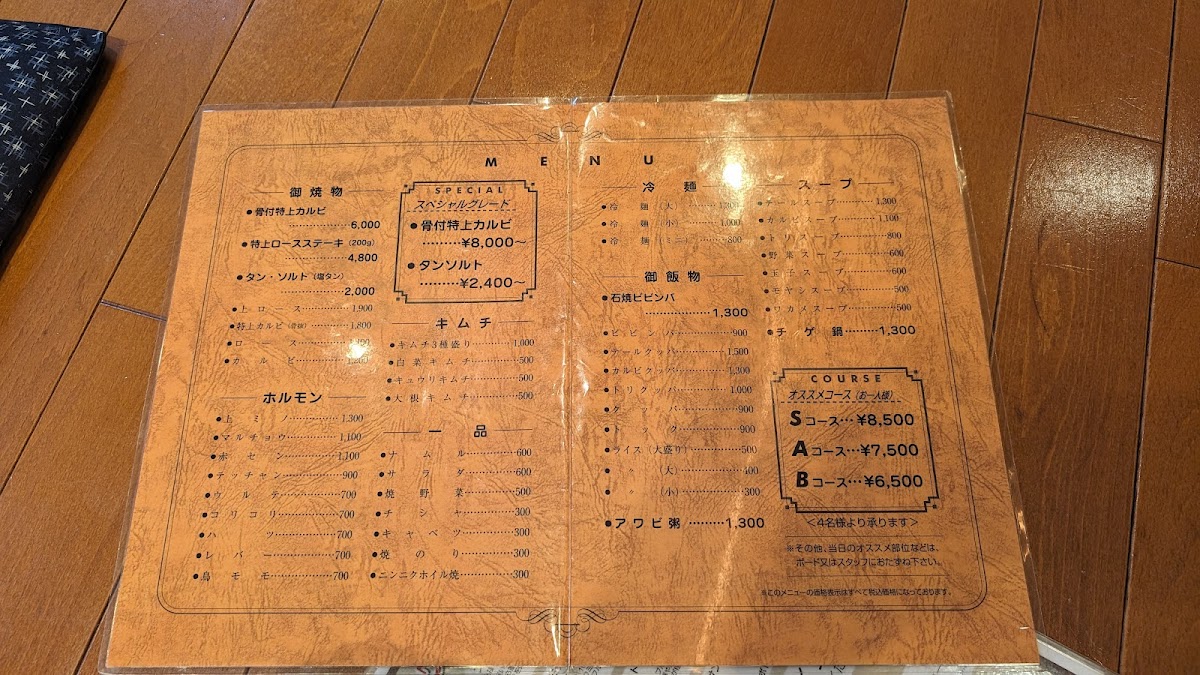 MENU
御焼物
●骨付特上カルビ
………………6,000
●特上ロースステーキ（200g）
………………4,800
●タン・ソルト（塩タン）
………………2,000
●上ロース………………1,900
●特上カルビ………………1,800
●ロース………………
●カルビ………………
ホルモン
●上ミノ………………1,300
●マルチョウ………………1,100
●赤セン………………1,100
●テッチャン………………900
●ウルテ………………700
●コリコリ………………700
●ハツ………………700
●レバー………………700
●鳥モモ………………700
SPECIAL
スペシャルグレード
●骨付特上カルビ
………¥8,000〜
●タンソルト
………¥2,400〜
キムチ
●キムチ3種盛り………………1,000
●白菜キムチ………………500
●キュウリキムチ………………500
●大根キムチ………………500
一品
●ナムル………………600
●サラダ………………600
●焼野菜………………500
●チシャ………………300
●キャベツ………………300
●焼のり………………300
●ニンニクホイル焼………………300
冷麺
●冷麺（大）………………1,300
●冷麺（小）………………1,000
●冷麺（ミニ）………………800
御飯物
●石焼ビビンバ
………………1,300
●ビビンバ………………900
●テールクッパ………………1,500
●カルビクッパ………………1,300
●トリクッパ………………1,000
●クッパ………………900
●トック………………900
●ライス（大盛り）………………500
●〃（大）………………400
●〃（小）………………300
●アワビ粥………1,300
スープ
●テールスープ………………1,300
●カルビスープ………………1,100
●トリスープ………………800
●野菜スープ………………600
●玉子スープ………………600
●モヤシスープ………………500
●ワカメスープ………………500
●チゲ鍋………1,300
COURSE
オススメコース（お一人様）
Sコース…¥8,500
Aコース…¥7,500
Bコース…¥6,500
＜4名様より承ります＞
※その他、当日のオススメ部位などは、
ボード又はスタッフにおたずね下さい。
※このメニューの価格表示はすべて税込価格になっております。